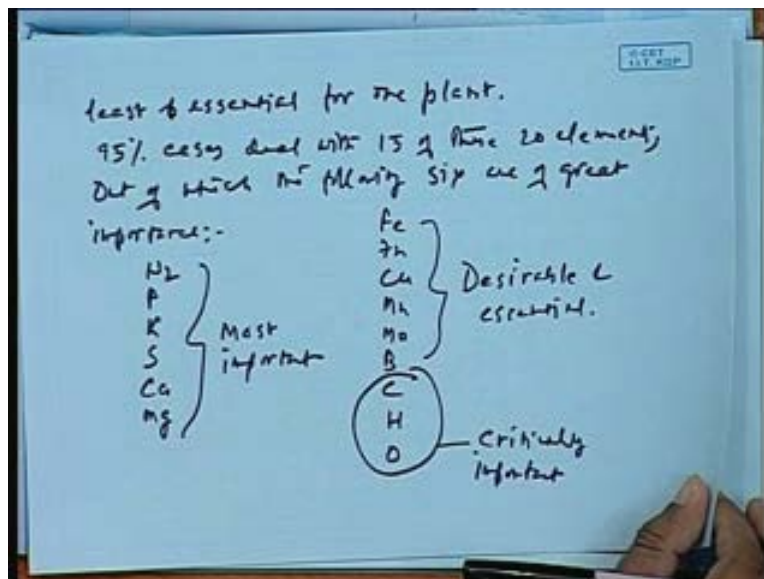 © CET
I.I.T. KGP
least & essential for the plant.
95% cases deal with 15 of these 20 elements,
Out of which the following six are of great
importance:-
N2
P
K
S
Ca
Mg
Most
important
Fe
Zn
Cu
Mn
Mo
B
Desirable &
essential.
C
H
O
Critically
important